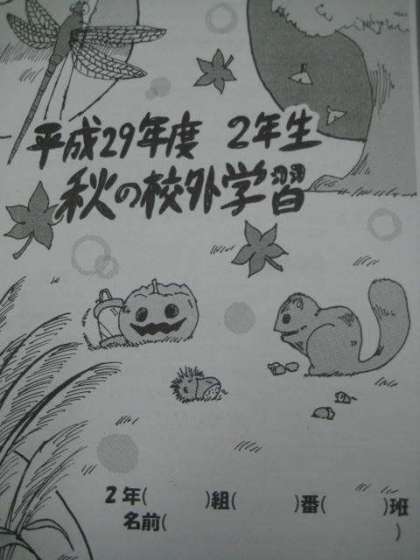 平成29年度 2年生
秋の校外学習
2年( )組( )番( )班
名前( )